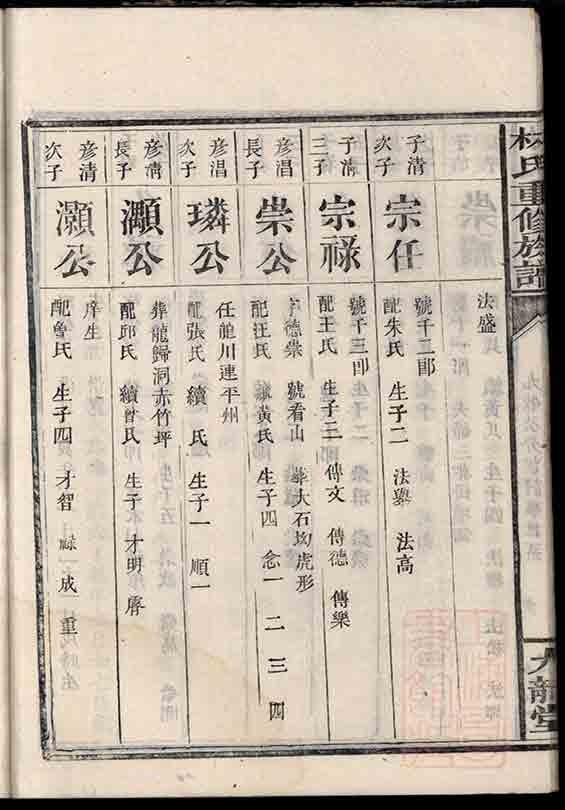 林氏重修族譜
九龍堂
法盛
子清
次子
宗任
號千二郎
配朱氏 生子二 法舉 法高
子清
三子
宗祿
號千三郎
配王氏 生子三 傳文 傳德 傳樂
彥昌
長子
崇公
德崇 號看山 葬大石坳虎形
配汪氏 續黃氏 生子四 念一 二 三 四
彥昌
次子
璘公
任龍川連平州
配張氏 續 氏 生子一 順一
彥清
長子
灝公
葬龍歸洞赤竹坪
配邱氏 續曾氏 生子 才明
彥清
次子
灝公
庠生
配詹氏 生子四 才智 祿 成 重